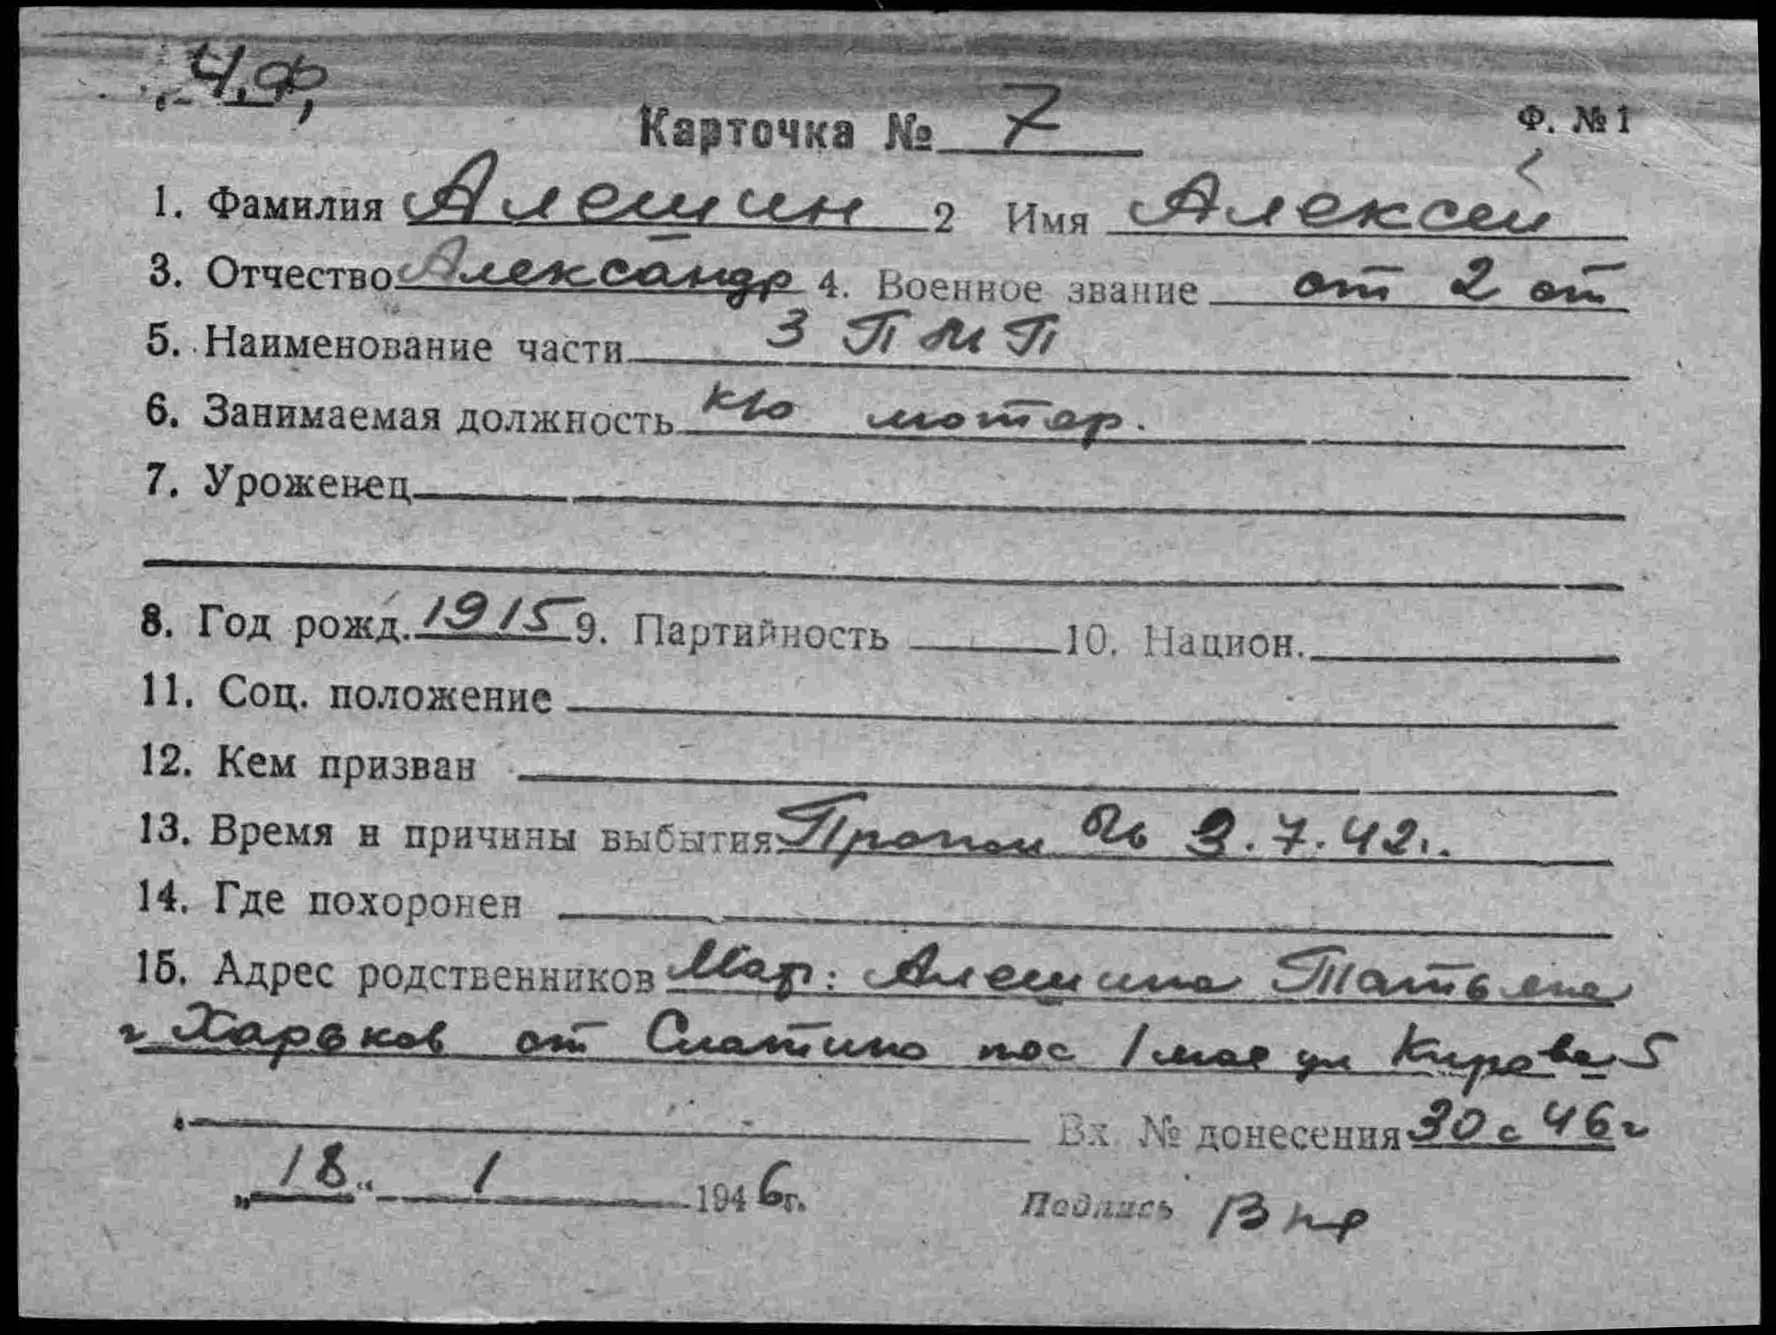 Ч.Ф,
Карточка № 7 Ф. № 1
1. Фамилия Алешин 2 Имя Алексей
3. Отчество Александр 4. Военное звание ст 2 ст
5. Наименование части 3 ПМП
6. Занимаемая должность к-ю мотор.
7. Уроженец
8. Год рожд. 1915 9. Партийность 10. Национ.
11. Соц. положение
12. Кем призван
13. Время и причины выбытия Пропал 3.7.42г.
14. Где похоронен
15. Адрес родственников Мать: Алешина Татьяна
г Харьков ст Слатино пос 1 мая ул Кирова 5
Вх. № донесения 30 с 46 г
„18“ 1 1946г. Подпись